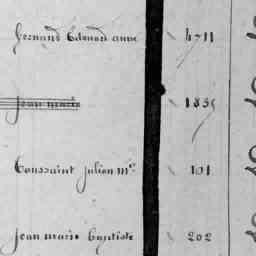 fernand Edouard anne 4711
jean marie 1835
Toussaint julien m.ie 101
jean marie baptiste 202